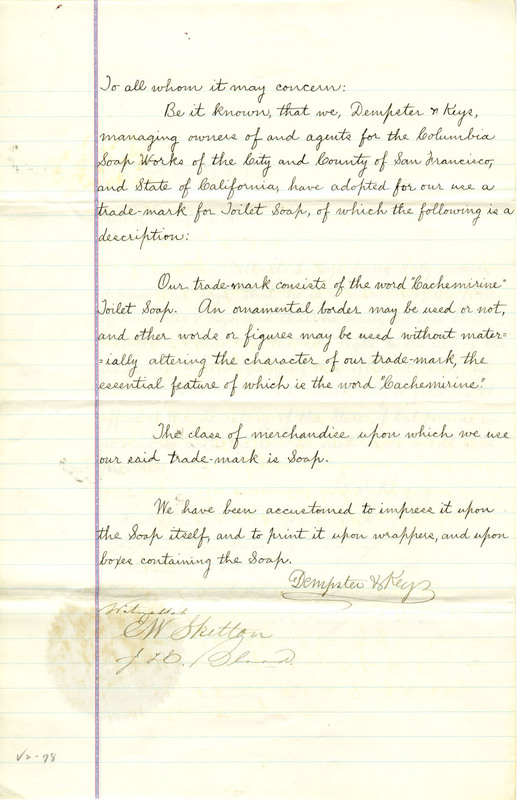 To all whom it may concern:
Be it known, that we, Dempster & Keys,
managing owners of and agents for the Columbia
Soap Works of the City and County of San Francisco,
and State of California, have adopted for our use a
trade-mark for Toilet Soap, of which the following is a
description:
Our trade-mark consists of the word "Cachemirine"
Toilet Soap. An ornamental border may be used or not,
and other words or figures may be used without mater=
=ially altering the character of our trade-mark, the
essential feature of which is the word "Cachemirine".
The class of merchandise upon which we use
our said trade-mark is Soap.
We have been accustomed to impress it upon
the Soap itself, and to print it upon wrappers, and upon
boxes containing the Soap.
Dempster & Keys
EW Skelton
V2-98